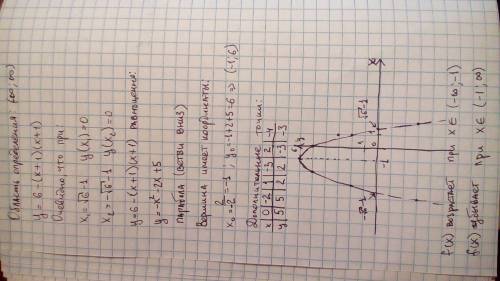 Область определения: (-∞; ∞)
y = 6 - (x+1)(x+1)
Очевидно, что при:
x₁ = √6 - 1    y(x₁) = 0
x₂ = -√6 - 1    y(x₂) = 0
y = 6 - (x+1)(x+1) равноценно:
y = -x² - 2x + 5
парабола (ветви вниз)
Вершина имеет координаты:
x₀ = -2/2 = -1; y₀ = -1+2+5 = 6 => (-1; 6)
Дополнительные точки:
x | 0 | -2 | 1 | -3 | 2 | -4
y | 5 | 5 | 2 | 2 | -3 | -3
6 y
-√6-1 -1 1 1 √6-1 x
f(x) возрастает при x ∈ (-∞; -1)
f(x) убывает при x ∈ (-1; ∞)